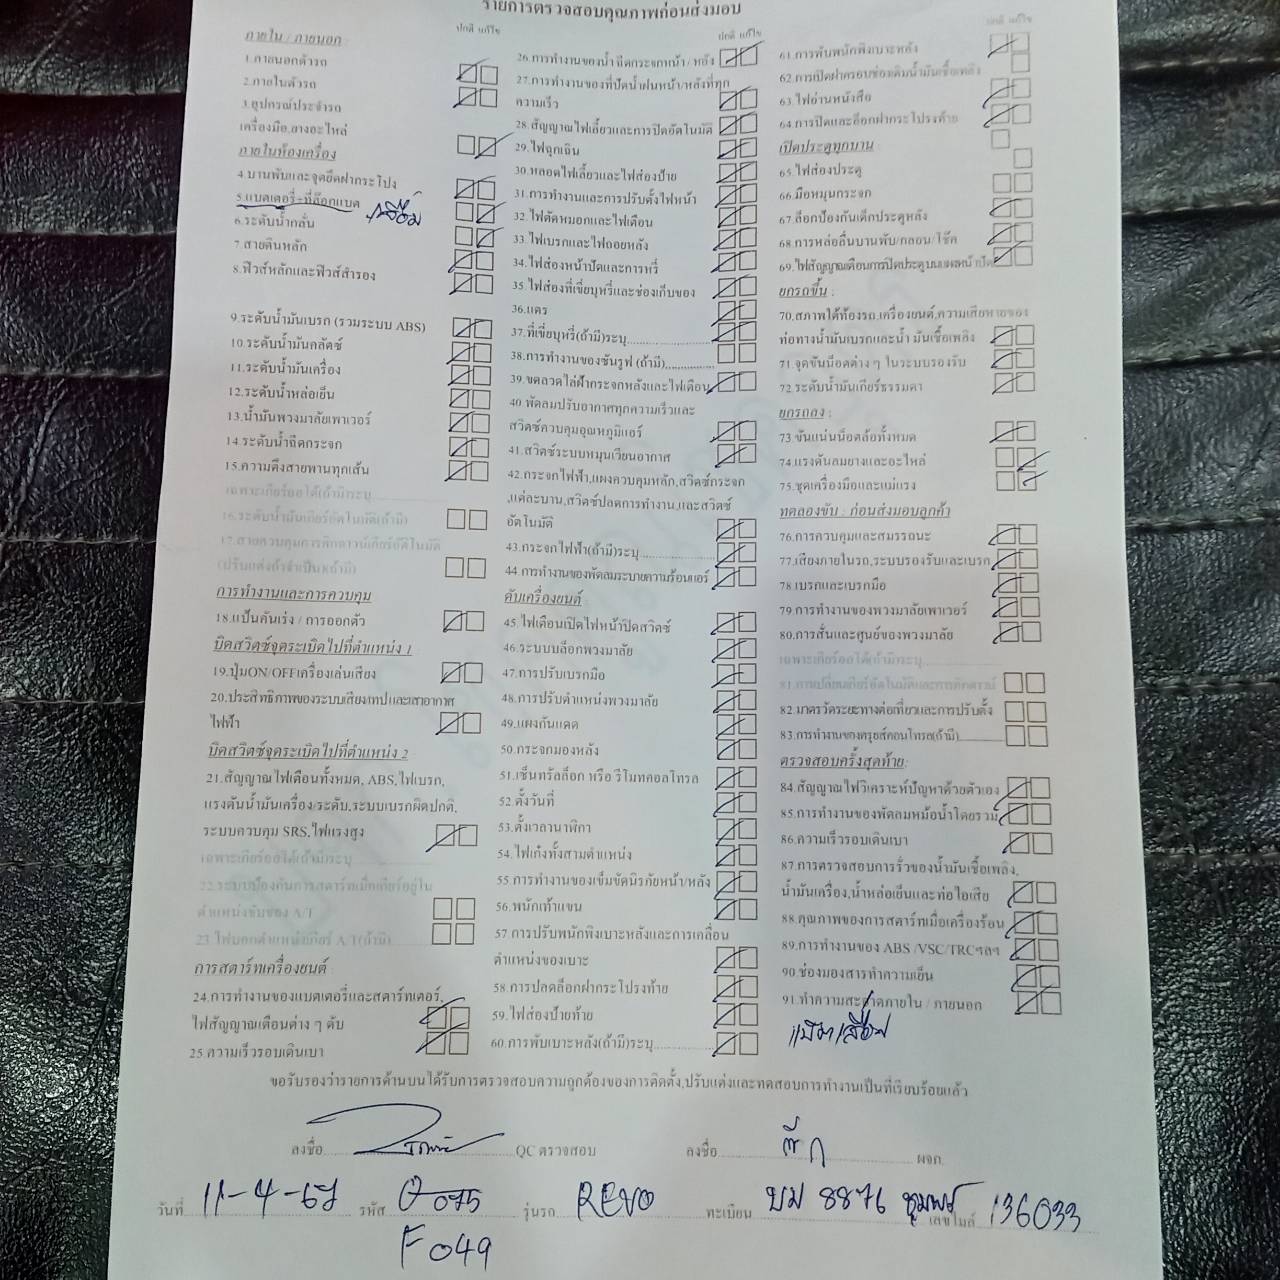 รายการตรวจสอบคุณภาพก่อนส่งมอบ
ปกติ แก้ไข
ภายใน / ภายนอก
1.ภายนอกตัวรถ
2.ภายในตัวรถ
3.อุปกรณ์ประจำรถ
เครื่องมือ,ยางอะไหล่
ภายในห้องเครื่อง
4.บานพับและจุดยึดฝากระโปรง
5.แบตเตอรี่-ที่ล๊อกแบต เสื่อม
6.ระดับน้ำกลั่น
7.สายดินหลัก
8.ฟิวส์หลักและฟิวส์สำรอง
9.ระดับน้ำมันเบรก (รวมระบบ ABS)
10.ระดับน้ำมันคลัตช์
11.ระดับน้ำมันเครื่อง
12.ระดับน้ำหล่อเย็น
13.น้ำมันพวงมาลัยเพาเวอร์
14.ระดับน้ำฉีดกระจก
15.ความตึงสายพานทุกเส้น
เฉพาะเกียร์ออโต้(ถ้ามี)ระบุ
16.ระดับน้ำมันเกียร์อัตโนมัติ(ถ้ามี)
17.สายควบคุมการคิกดาวน์เกียร์อัตโนมัติ
(ปรับแต่งถ้าจำเป็น)(ถ้ามี)
การทำงานและการควบคุม
18.แป้นคันเร่ง / การออกตัว
บิดสวิตช์จุดระเบิดไปที่ตำแหน่ง 1
19.ปุ่มON/OFFเครื่องเล่นเสียง
20.ประสิทธิภาพของระบบเสียงเทปและเสาอากาศ
ไฟฟ้า
บิดสวิตช์จุดระเบิดไปที่ตำแหน่ง 2
21.สัญญาณไฟเตือนทั้งหมด, ABS,ไฟเบรก,
แรงดันน้ำมันเครื่อง/ระดับ,ระบบเบรกผิดปกติ,
ระบบควบคุม SRS,ไฟแรงสูง
เฉพาะเกียร์ออโต้(ถ้ามี)ระบุ
22.ระบบป้องกันการสตาร์ทเมื่อเกียร์อยู่ใน
ตำแหน่งขับของ A/T
23.ไฟบอกตำแหน่งเกียร์ A/T(ถ้ามี)
การสตาร์ทเครื่องยนต์
24.การทำงานของแบตเตอรี่และสตาร์ทเตอร์,
ไฟสัญญาณเตือนต่าง ๆ ดับ
25.ความเร็วรอบเดินเบา
ปกติ แก้ไข
26.การทำงานของน้ำฉีดกระจกหน้า / หลัง
27.การทำงานของที่ปัดน้ำฝนหน้า/หลังที่ทุก
ความเร็ว
28.สัญญาณไฟเลี้ยวและการปิดอัตโนมัติ
29.ไฟฉุกเฉิน
30.หลอดไฟเลี้ยวและไฟส่องป้าย
31.การทำงานและการปรับตั้งไฟหน้า
32.ไฟตัดหมอกและไฟเตือน
33.ไฟเบรกและไฟถอยหลัง
34.ไฟส่องหน้าปัดและการหรี่
35.ไฟส่องที่เขี่ยบุหรี่และช่องเก็บของ
36.แตร
37.ที่เขี่ยบุหรี่(ถ้ามี)ระบุ
38.การทำงานของซันรูฟ (ถ้ามี)
39.ขดลวดไล่ฝ้ากระจกหลังและไฟเตือน
40.พัดลมปรับอากาศทุกความเร็วและ
สวิตช์ควบคุมอุณหภูมิแอร์
41.สวิตช์ระบบหมุนเวียนอากาศ
42.กระจกไฟฟ้า,แผงควบคุมหลัก,สวิตช์กระจก
,แต่ละบาน,สวิตช์ปลดการทำงาน,และสวิตช์
อัตโนมัติ
43.กระจกไฟฟ้า(ถ้ามี)ระบุ
44.การทำงานของพัดลมระบายความร้อนแอร์
ดับเครื่องยนต์
45.ไฟเตือนเปิดไฟหน้าปิดสวิตช์
46.ระบบล็อกพวงมาลัย
47.การปรับเบรกมือ
48.การปรับตำแหน่งพวงมาลัย
49.แผงกันแดด
50.กระจกมองหลัง
51.เซ็นทรัลล็อก หรือ รีโมทคอลโทรล
52.ตั้งวันที่
53.ตั้งเวลานาฬิกา
54.ไฟเก๋งทั้งสามตำแหน่ง
55.การทำงานของเข็มขัดนิรภัยหน้า/หลัง
56.พนักเท้าแขน
57.การปรับพนักพิงเบาะหลังและการเคลื่อน
ตำแหน่งของเบาะ
58.การปลดล็อกฝากระโปรงท้าย
59.ไฟส่องป้ายท้าย
60.การพับเบาะหลัง(ถ้ามี)ระบุ
ปกติ แก้ไข
61.การพับพนักพิงเบาะหลัง
62.การเปิดฝาครอบช่องเติมน้ำมันเชื้อเพลิง
63.ไฟอ่านหนังสือ
64.การปิดและล็อกฝากระโปรงท้าย
เปิดประตูทุกบาน
65.ไฟส่องประตู
66.มือหมุนกระจก
67.ล็อกป้องกันเด็กประตูหลัง
68.การหล่อลื่นบานพับ/กลอน/โช๊ค
69.ไฟสัญญาณเตือนการปิดประตูบนแผงหน้าปัด
ยกรถขึ้น :
70.สภาพใต้ท้องรถ,เครื่องยนต์,ความเสียหายของ
ท่อทางน้ำมันเบรกและน้ำมันเชื้อเพลิง
71.จุดขันน็อตต่าง ๆ ในระบบรองรับ
72.ระดับน้ำมันเกียร์ธรรมดา
ยกรถลง :
73.ขันแน่นน็อตล้อทั้งหมด
74.แรงดันลมยางและอะไหล่
75.ชุดเครื่องมือและแม่แรง
ทดลองขับ : ก่อนส่งมอบลูกค้า
76.การควบคุมและสมรรถนะ
77.เสียงภายในรถ,ระบบรองรับและเบรก
78.เบรกและเบรกมือ
79.การทำงานของพวงมาลัยเพาเวอร์
80.การสั่นและศูนย์ของพวงมาลัย
เฉพาะเกียร์ออโต้(ถ้ามี)ระบุ
81.การเปลี่ยนเกียร์อัตโนมัติและการคิกดาวน์
82.มาตรวัดระยะทางต่อเที่ยวและการปรับตั้ง
83.การทำงานของครุยส์คอนโทรล(ถ้ามี)
ตรวจสอบครั้งสุดท้าย:
84.สัญญาณไฟวิเคราะห์ปัญหาด้วยตัวเอง
85.การทำงานของพัดลมหม้อน้ำโดยรวม
86.ความเร็วรอบเดินเบา
87.การตรวจสอบการรั่วของน้ำมันเชื้อเพลิง,
น้ำมันเครื่อง,น้ำหล่อเย็นและท่อไอเสีย
88.คุณภาพของการสตาร์ทเมื่อเครื่องร้อน
89.การทำงานของ ABS /VSC/TRCฯลฯ
90.ช่องมองสารทำความเย็น
91.ทำความสะอาดภายใน / ภายนอก
แบตเสื่อม
ขอรับรองว่ารายการด้านบนได้รับการตรวจสอบความถูกต้องของการติดตั้ง,ปรับแต่งและทดสอบการทำงานเป็นที่เรียบร้อยแล้ว
ลงชื่อ QC ตรวจสอบ ลงชื่อ ผจก.
วันที่ 11-4-67 รหัส 0075 รุ่นรถ REVO ทะเบียน บม 8876 ชุมพร เลขไมล์ 136033
F 049